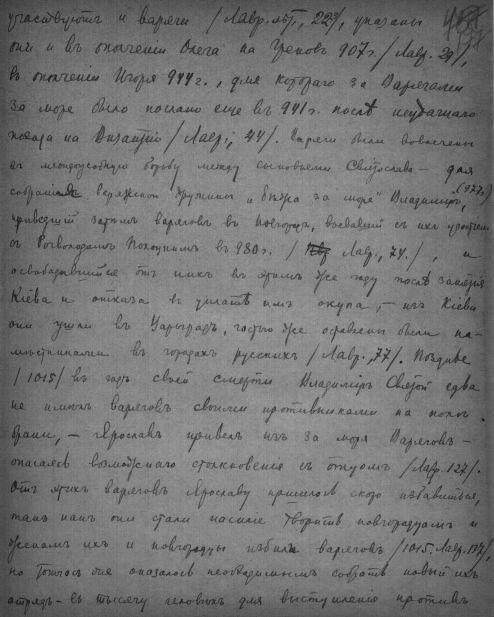 участвуютъ и варяги /Лавр. лѣт., 22/, указаны
они и въ ополченіи Олега на Грековъ 907 г. /Лавр. 29/,
въ ополченіи Игоря 944 г., для котораго за Варягами
за море было послано еще въ 941 г. послѣ неудачнаго
похода на Византію /Лавр., 44/. Варяги были вовлечены
въ междоусобную борьбу между сыновьями Святослава – для
собранія варяжской дружины и бѣжа за море" Владиміръ, (977 г.)
приведшій затѣмъ варяговъ въ Новгородъ, воевавшій съ ихъ
съ Рогволодомъ Полоцкимъ въ 980 г. / Лавр., 74/, и
освободившійся отъ нихъ въ этомъ же году послѣ занятія
Кіева и отказа въ уплатѣ имъ окупа, – изъ Кіева
они ушли въ Царьградъ, частью же оставлены были на-
мѣстниками въ городахъ русскихъ /Лавр., 77/. Позднѣе
/1015/ въ годъ своей смерти Владиміръ Святой едва
не имѣлъ варяговъ своими противниками на полѣ
брани, – Ярославъ привелъ изъ за моря Варяговъ –
опасаясь возможнаго столкновенія съ отцомъ /Лавр. 127/.
Отъ этихъ варяговъ Ярославу пришлось скоро избавиться,
такъ какъ они стали насиліе творить новгородцамъ и
женамъ ихъ и новгородцы избили варяговъ /1015. Лавр. 137/,
но тотчасъ же оказалось необходимымъ собрать новый ихъ
отрядъ – въ тысячу человѣкъ для выступленія противъ